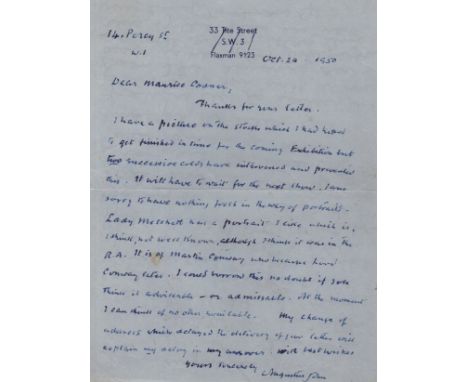 14. Percy St.
W.1
33 Tite Street
S.W.3
Flaxman 9423
Oct. 24 1950
Dear Maurice Codner,
Thanks for your letter.
I have a picture on the stocks which I had hoped
to get finished in time for the coming Exhibition but
two successive colds have intervened and prevented
this. It will have to wait for the next show. I am
sorry to have nothing fresh in the way of portraits.
Lady Melchett has a portrait I did which is,
I think, not well known, although I think it was in the
R.A. It is of Martin Conway who became Lord
Conway later. I could borrow this no doubt if you
think it advisable - or admissable. At the moment
I can think of no other available. My change of
address which delayed the delivery of your letter will
explain my delay in my answer. With best wishes
Yours sincerely
Augustus John